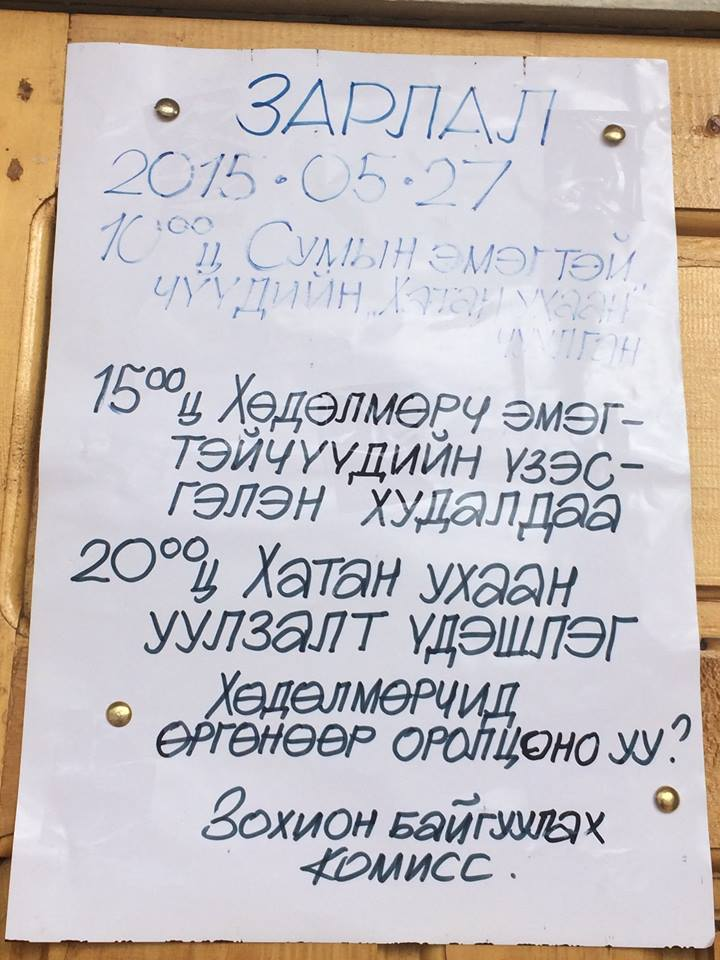 ЗАРЛАЛ
2015.05.27
10⁰⁰ц Сумын эмэгтэй
чүүдийн „Хатан ухаан"
чуулган
15⁰⁰ц Хөдөлмөрч эмэг-
тэйчүүдийн үзэс-
гэлэн худалдаа
20⁰⁰ц Хатан ухаан
уулзалт үдэшлэг
Хөдөлмөрчид
өргөнөөр оролцоно уу?
Зохион байгуулах
комисс.